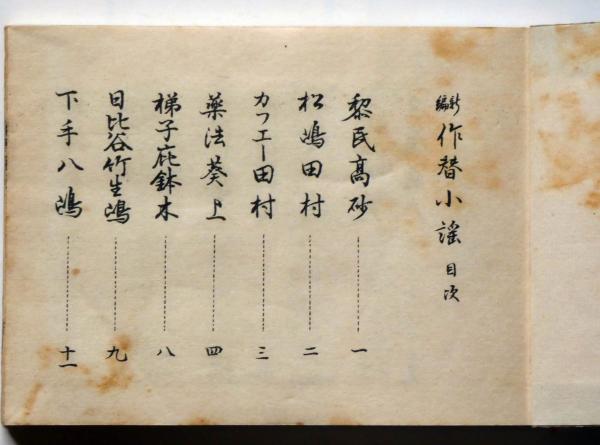 新編 作替小謡 目次
黎民高砂 一
松嶋田村 二
カフエー田村 三
薬法葵上 四
梯子庇鉢木 八
日比谷竹生嶋 九
下手八嶋 十一